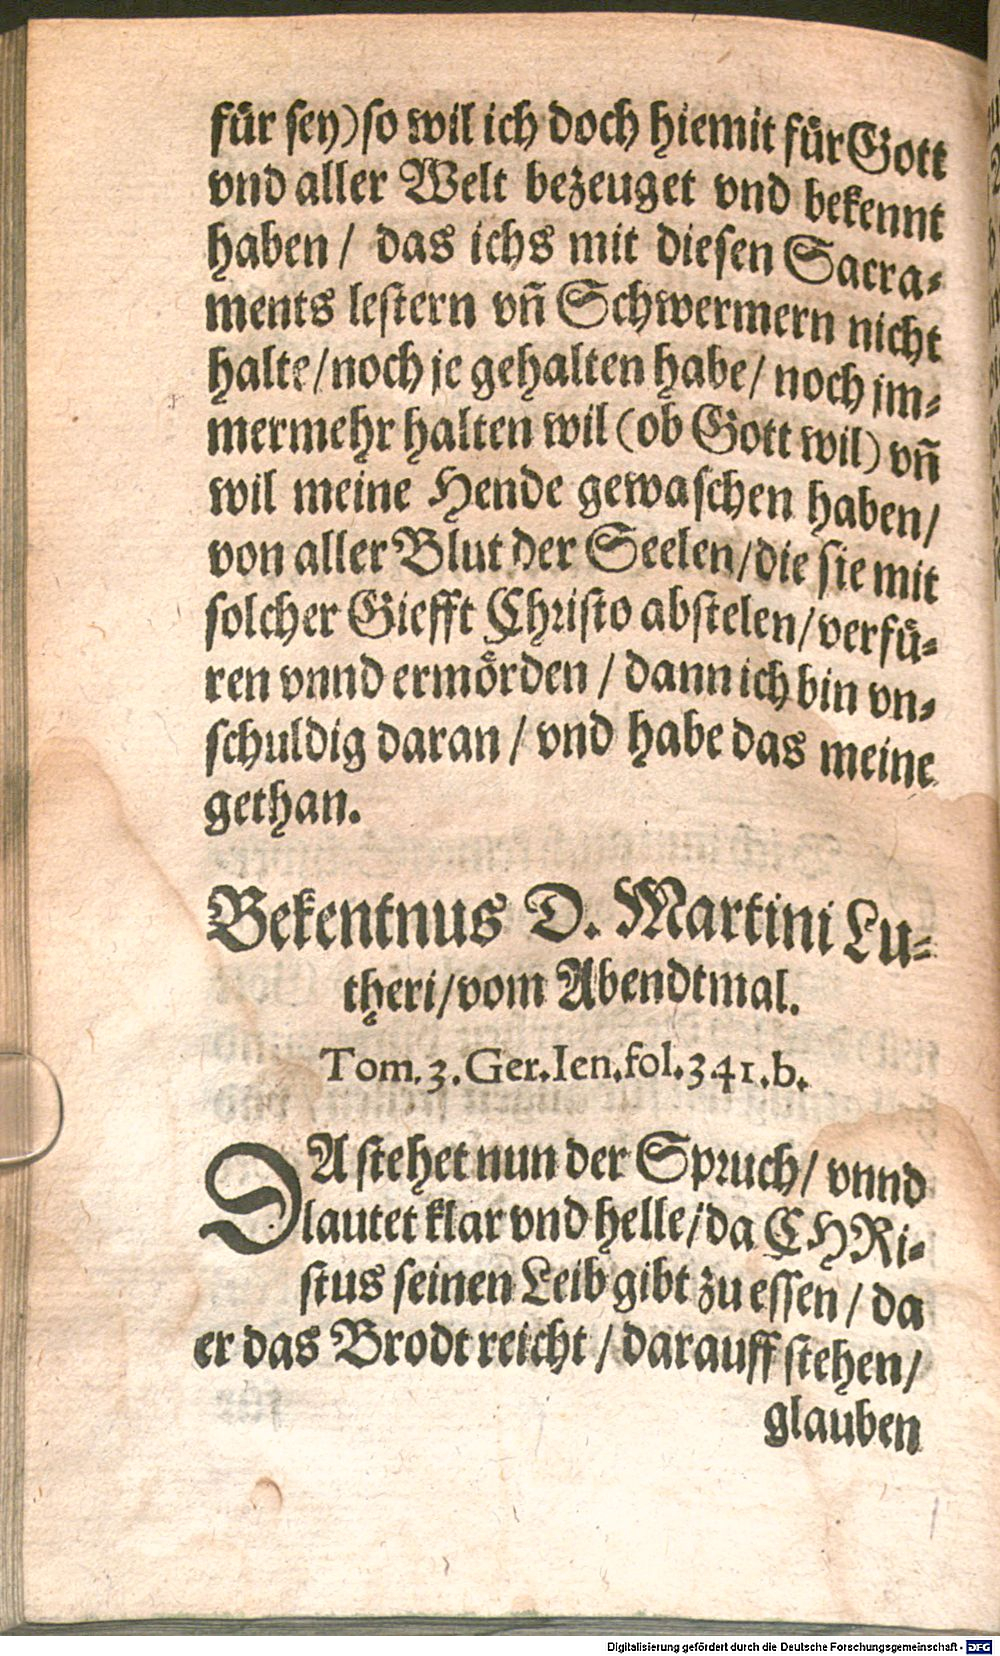 für sey) so wil ich doch hiemit für Gott
vnd aller Welt bezeuget vnd bekennt
haben / das ichs mit diesen Sacra⸗
ments lestern vñ Schwermern nicht
halte / noch je gehalten habe / noch jm⸗
mermehr halten wil (ob Gott wil) vñ
wil meine Hende gewaschen haben /
von aller Blut der Seelen / die sie mit
solcher Giefft Christo abstelen / verfü⸗
ren vnnd ermörden / dann ich bin vn⸗
schuldig daran / vnd habe das meine
gethan.
Bekentnus D. Martini Lu⸗
theri / vom Abendtmal.
Tom. 3. Ger. Ien. fol. 341. b.
DA stehet nun der Spruch / vnnd
lautet klar vnd helle / da CHRi⸗
stus seinen Leib gibt zu essen / da
er das Brodt reicht / darauff stehen /
glauben
Digitalisierung gefördert durch die Deutsche Forschungsgemeinschaft - DFG